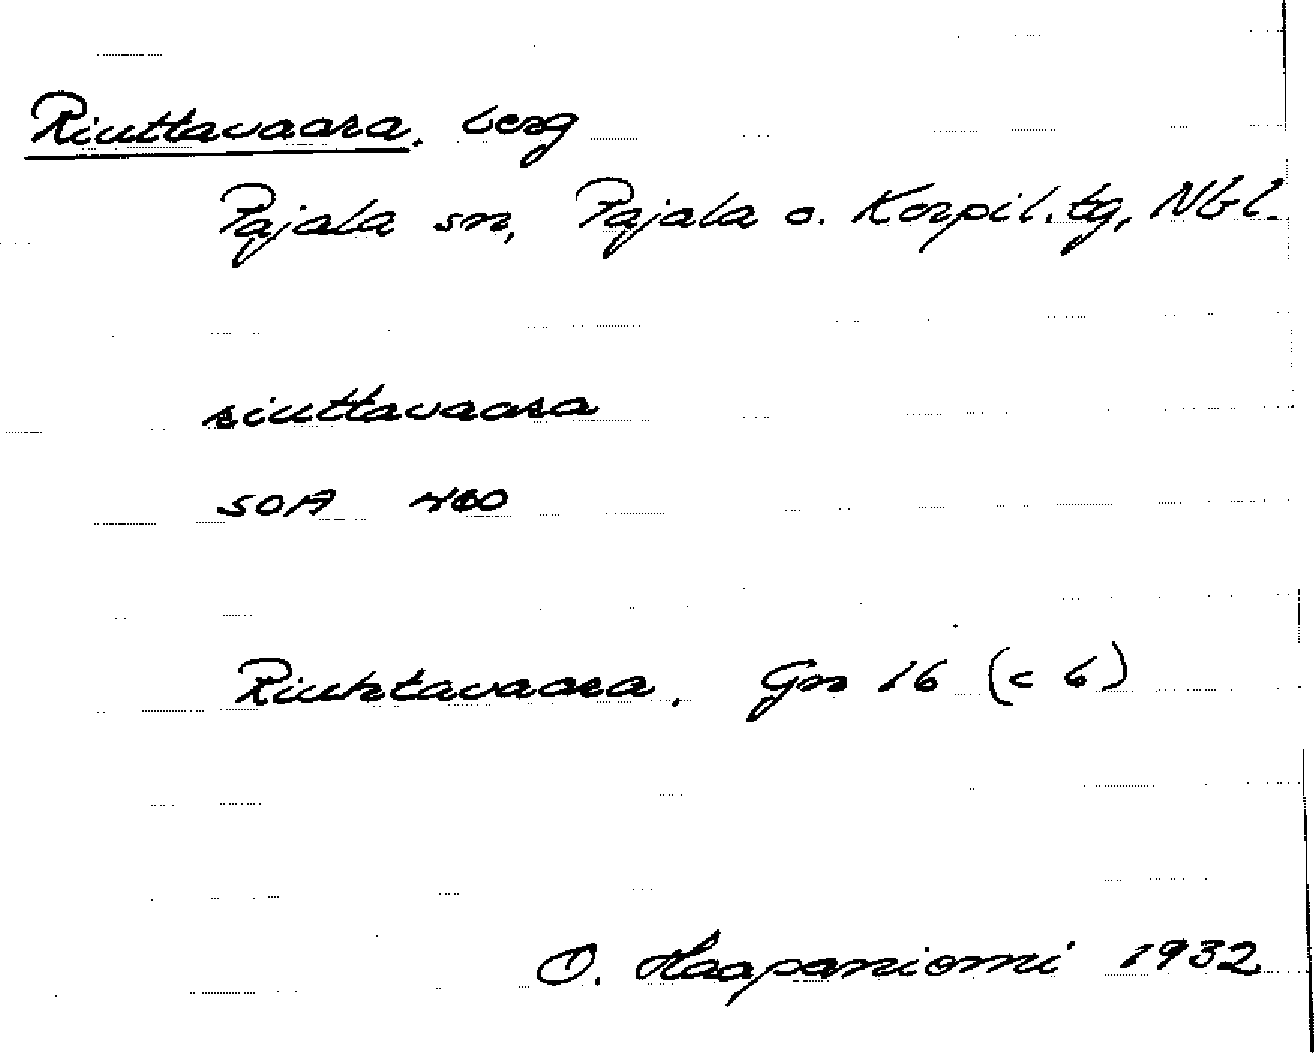 Riuttavaara, berg
Pajala sn, Pajala o. Korpil. tg, Nbl.
riuttavaara
SOA 460
Riuhtavaara. Gn 16 (c 6)
O. Haapaniemi 1932